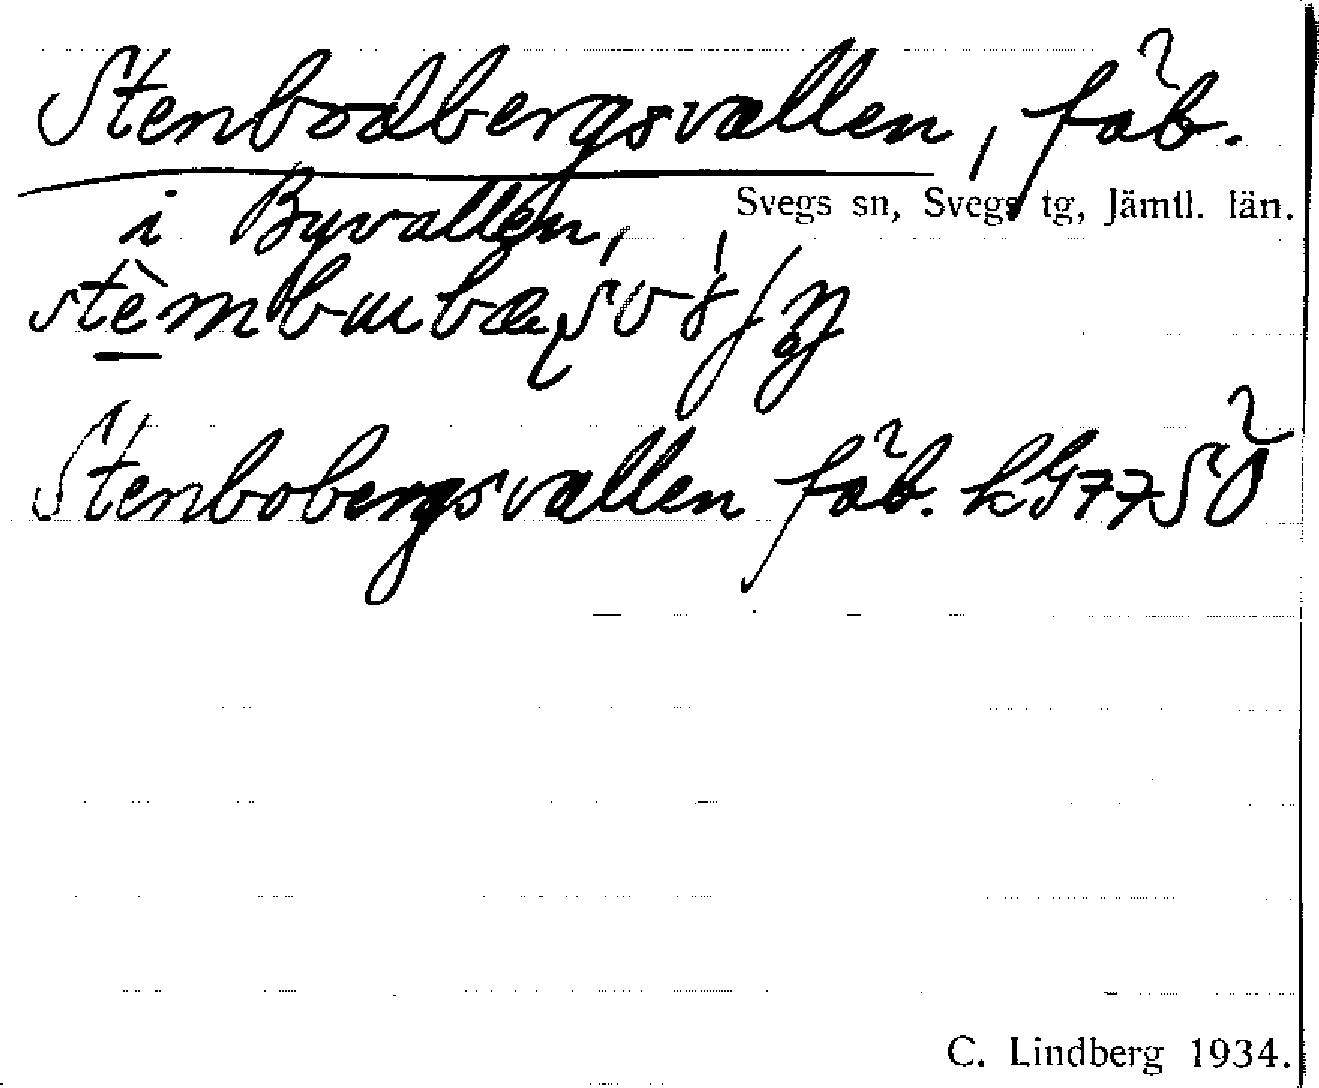 Stenbodbergsvallen, fäb.
Svegs sn, Svegs tg, Jämtl. län.
i Byvallen,
Stenbobergsvallen fäb. kG77SÖ
C. Lindberg 1934.